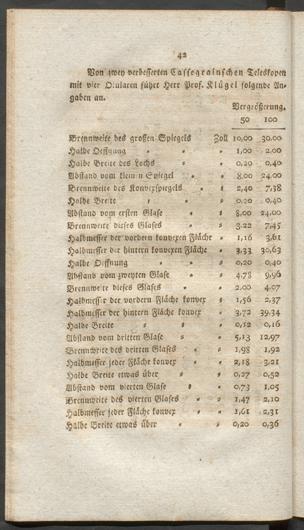 42
Von zwey verbesserten Cassegrainschen Teleskopen
mit vier Ocularen führt Herr Prof. Klügel folgende An-
gaben an.
Vergrößerung.
50 100
Brennweite des grossen Spiegels Zoll 10,00 30,00
Halbe Oeffnung " " 1,00 2,00
Halbe Breite des Lochs " 0,20 0,40
Abstand vom kleinen Spiegel " " 8,00 24,00
Brennweite des Konverspiegels " " 2,40 7,38
Halbe Breite " " 0,20 0,40
Abstand vom ersten Glase " " 8,00 24,00
Brennweite dieses Glases " " 3,22 7,45
Halbmesser der vordern konvexen Fläche " 1,16 3,61
Halbmesser der hintern konvexen Fläche " 3,33 30,63
Halbe Oeffnung " " 0,20 0,40
Abstand vom zweyten Glase " " 4,78 9,96
Brennweite dieses Glases " " 2,00 4,07
Halbmesser der vordern Fläche konvex " 1,56 2,37
Halbmesser der hintern Fläche konvex " 3,72 39,34
Halbe Breite " " 0,12 0,16
Abstand vom dritten Glase " " 5,13 12,97
Brennweite des dritten Glases " " 1,98 1,92
Halbmesser jeder Fläche konvex " " 2,18 3,21
Halbe Breite etwas über " " 0,27 0,52
Abstand vom vierten Glase " " 0,73 1,05
Brennweite des vierten Glases " " 1,47 2,10
Halbmesser jeder Fläche konvex " " 1,61 2,31
Halbe Breite etwas über " " 0,20 0,36